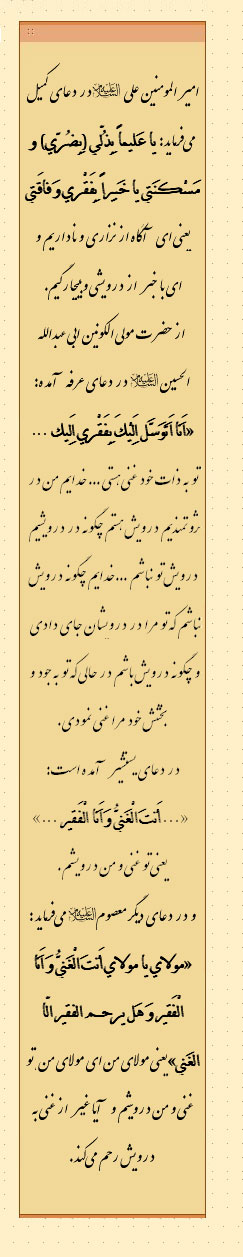 امیر المومنین علی علیه‌السلام در دعای کمیل
می‌فرماید: یا عَلیماً بِذُلّي (بِضُرّي) و
مَسْکَنَتي یا خَبیراً بِفَقْري وَ فاقَتي
یعنی ای آگاه از نزاری و ناداریم و
ای با خبر از درویشی و بیچارگیم.
از حضرت مولی الکونین ابی عبدالله
الحسین علیه‌السلام در دعای عرفه آمده:
«اَنَا اَتَوَسَّل اِلَیْكَ بِفَقْري اِلَیك ...
تو به ذات خود غنی هستی ... خدایم من در
ثروتمندیم درویش هستم چگونه در درویشیم
درویش تو نباشم ... خدایم چگونه درویش
نباشم که تو مرا در درویشان جای دادی
و چگونه درویش باشم در حالی که تو به جود و
بخشش خود مرا غنی نمودی.
در دعای یستشیر آمده است:
«... أَنتَ الْغَنِيُّ وَ أَنَا الْفَقیر ...»
یعنی تو غنی و من درویشم.
و در دعای دیگر معصوم علیه‌السلام می‌فرماید:
«مولاي یا مولاي أَنتَ الْغَنِيُّ وَ أَنَا
الْفَقیر وَ هَل یرحم الفقیر الّا
الغَني» یعنی مولای من ای مولای من تو
غنی و من درویشم و آیا غیر از غنی به
درویش رحم می‌کند.